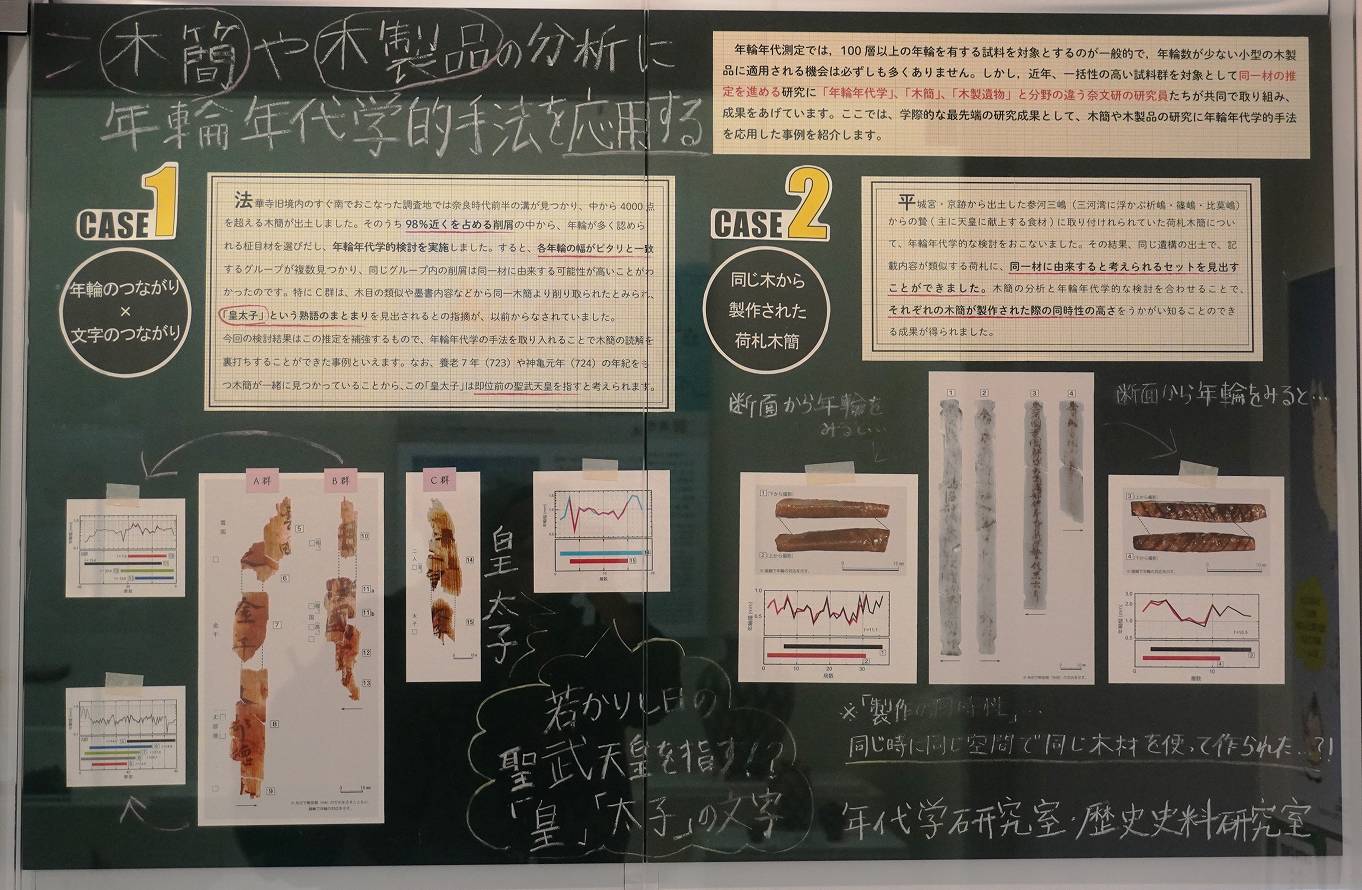 木簡や木製品の分析に
年輪年代学的手法を応用する
年輪年代測定では，100層以上の年輪を有する試料を対象とするのが一般的で，年輪数が少ない小型の木製
品に適用される機会は必ずしも多くありません。しかし，近年，一括性の高い試料群を対象として同一材の推
定を進める研究に「年輪年代学」、「木簡」、「木製遺物」と分野の違う奈文研の研究員たちが共同で取り組み、
成果をあげています。ここでは、学際的な最先端の研究成果として、木簡や木製品の研究に年輪年代学的手法
を応用した事例を紹介します。
CASE 1
年輪のつながり
×
文字のつながり
法華寺旧境内のすぐ南でおこなった調査地では奈良時代前半の溝が見つかり、中から4000点
を超える木簡が出土しました。そのうち98%近くを占める削屑の中から、年輪が多く認めら
れる柾目材を選びだし、年輪年代学的検討を実施しました。すると、各年輪の幅がピタリと一致
するグループが複数見つかり、同じグループ内の削屑は同一材に由来する可能性が高いことがわ
かったのです。特にC群は、木目の類似や墨書内容などから同一木簡より削り取られたとみられ、
「皇太子」という熟語のまとまりを見出されるとの指摘が、以前からなされていました。
今回の検討結果はこの推定を補強するもので、年輪年代学の手法を取り入れることで木簡の読解を
裏打ちすることができた事例といえます。なお、養老7年（723）や神亀元年（724）の年紀をも
つ木簡が一緒に見つかっていることから、この「皇太子」は即位前の聖武天皇を指すと考えられます。
CASE 2
同じ木から
製作された
荷札木簡
平城宮・京跡から出土した参河三嶋（三河湾に浮かぶ析嶋・篠嶋・比莫嶋）
からの贄（主に天皇に献上する食材）に取り付けられていた荷札木簡につい
て、年輪年代学的な検討をおこないました。その結果、同じ遺構の出土で、記
載内容が類似する荷札に、同一材に由来すると考えられるセットを見出す
ことができました。木簡の分析と年輪年代学的な検討を合わせることで、
それぞれの木簡が製作された際の同時性の高さをうかがい知ることのでき
る成果が得られました。
断面から年輪を
みると…
断面から年輪をみると…
A群
B群
C群
5
6
7
8
9
10
11a
11b
12
13
14
15
皇太子
1
2
3
4
1 (下から撮影)
2 (上から撮影)
3 (上から撮影)
4 (下から撮影)
若かりし日の
聖武天皇を指す!?
「皇」「太子」の文字
※「製作の同時性」…
同じ時に同じ空間で同じ木材を使って作られた…?!
年代学研究室・歴史史料研究室